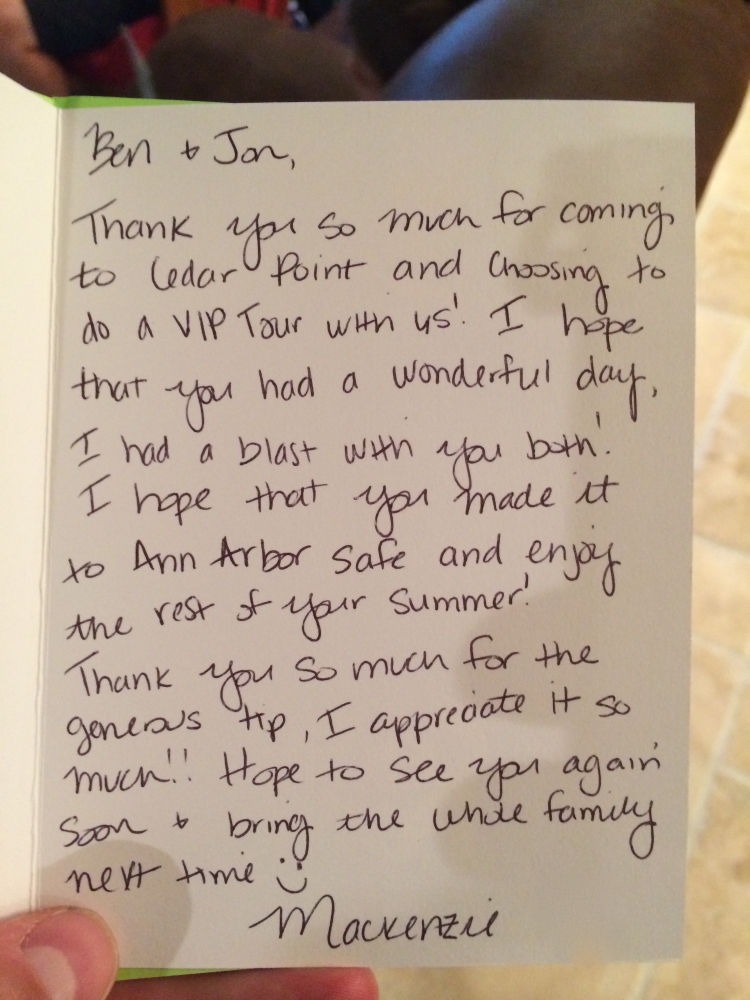 Ben & Jon,
Thank you so much for coming
to Cedar Point and choosing to
do a VIP Tour with us! I hope
that you had a wonderful day,
I had a blast with you both!
I hope that you made it
to Ann Arbor safe and enjoy
the rest of your summer!
Thank you so much for the
generous tip, I appreciate it so
much!! Hope to see you again
soon & bring the whole family
next time :)
Mackenzie